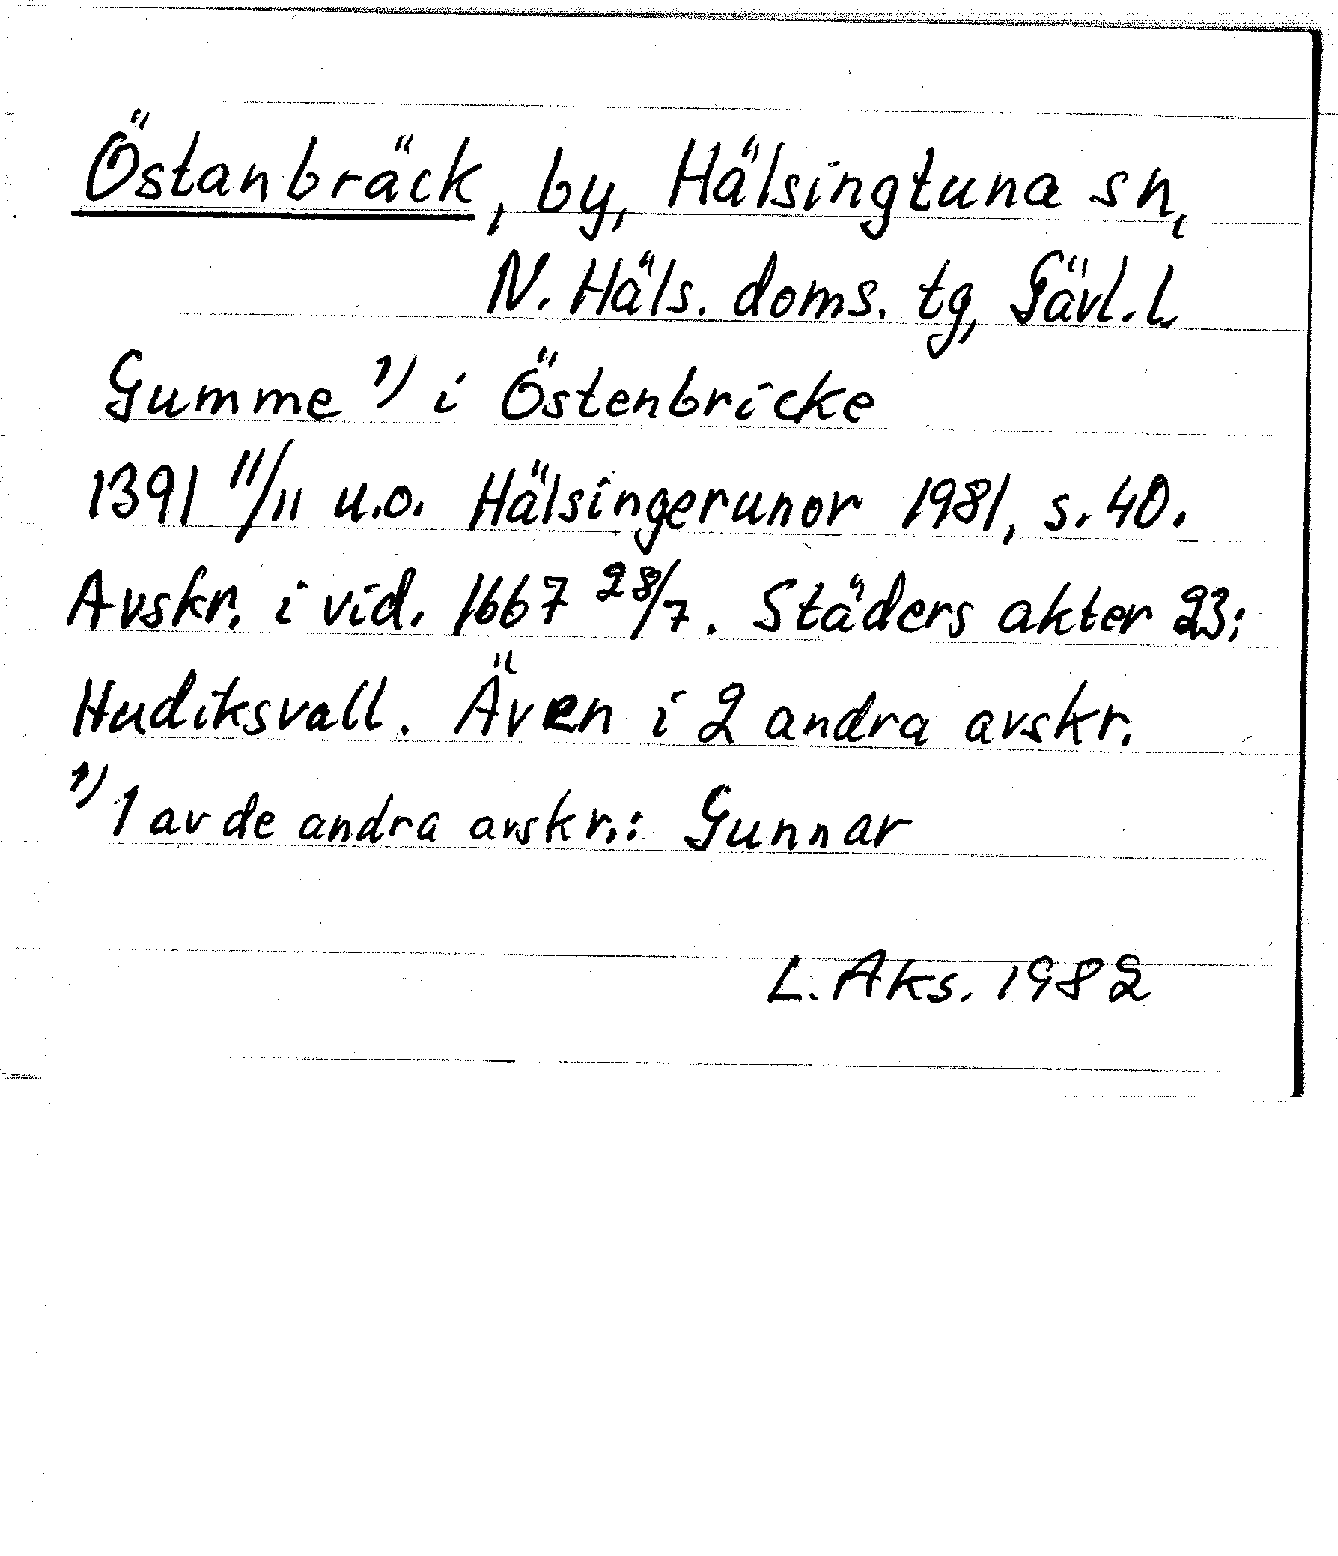 Östanbräck, by, Hälsingtuna sn,
N. Häls. doms. tg, Gävl. l.
Gumme ¹⁾ i Östenbricke
1391 11/11 u.o. Hälsingerunor 1981, s. 40.
Avskr. i vid. 1667 28/7. Städers akter 23:
Hudiksvall. Även i 2 andra avskr.
¹⁾ 1 av de andra avskr.: Gunnar
L. Aks. 1982